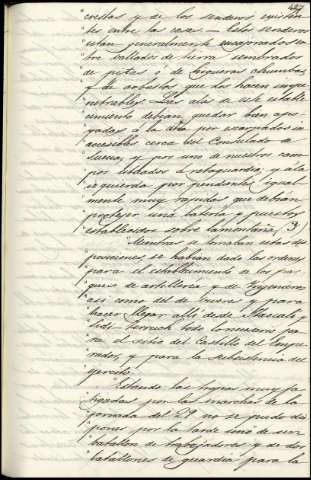 427
" crestas y de los senderos existen
" tes entre las casas. — Estos senderos
" estan generalmente encajonados en
" tre vallados de tierra sembrados
" de pitas ó de higueras chumbas,
" y de arbustos que los hacen impe
" netrables. — Las alas de este estable
" cimiento debian quedar bien apo
" yadas á la dra por escarpados in
" accesibles cerca del Consulado de
" Suecia, y por uno de nuestros cam
" pos situados á retaguardia, y á la
" izquierda por pendientes igual
" mente muy rapidas que debian
" protejer una bateria y puestos
" establecidos sobre la montaña,
" Mientras se tomaban estas dis
" posiciones se habian dado las ordenes
" para el establecimiento de los par
" ques de artilleria y de Ingenieros
" asi como del de viveres y para
" hacer llegar alli desde Staoueli y
" Sidi-Ferruch todo lo necesario pa
" ra el sitio del Castillo del Empe
" rador, y para la subsistencia del
" ejercito.
" Estando las tropas muy fa
" tigadas por las marchas de la
" jornada del 29 no se pudo dis
" poner por la tarde sino de un
" batallon de trabajadores y de dos
" batallones de guardia para la